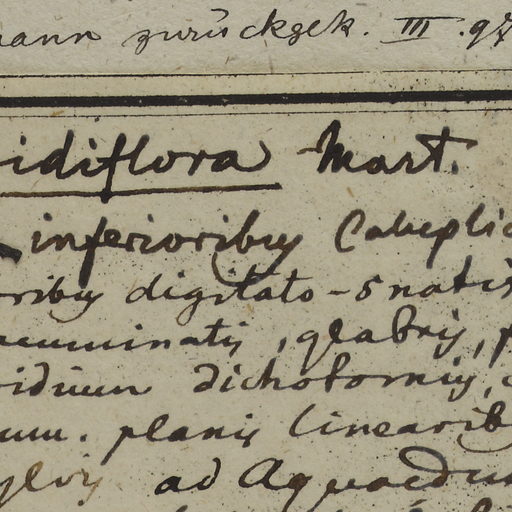 mann zurückgek. III. 97
idiflora Mart.
inferioribus
oribus digitato-5natis
acuminatis, glabris,
ridium dichotomis,
um. planis linearib
ylvis ad Aquaedu